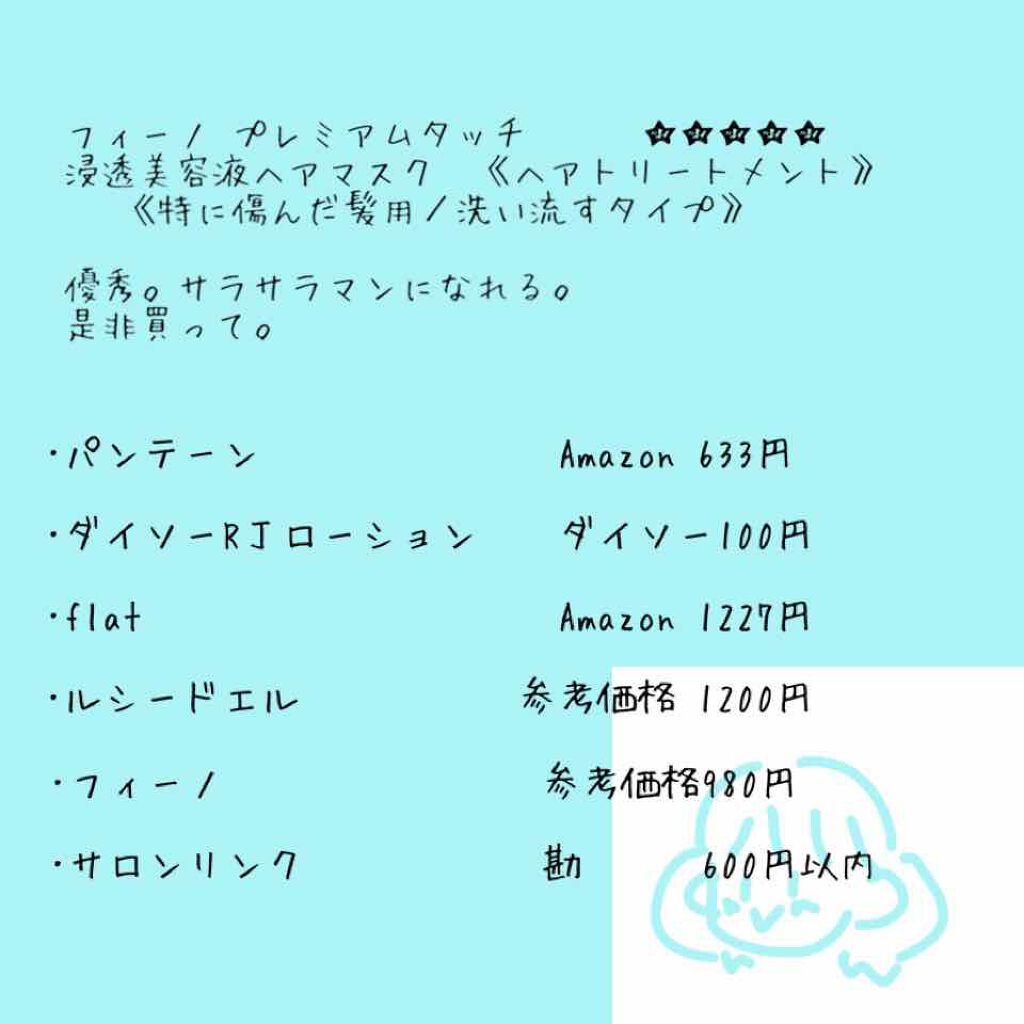 フィーノ プレミアムタッチ ★★★★★
浸透美容液ヘアマスク 《ヘアトリートメント》
《特に傷んだ髪用/洗い流すタイプ》
優秀。サラサラマンになれる。
是非買って。
・パンテーン Amazon 633円
・ダイソーRJローション ダイソー100円
・flat Amazon 1227円
・ルシードエル 参考価格 1200円
・フィーノ 参考価格980円
・サロンリンク 勘 600円以内